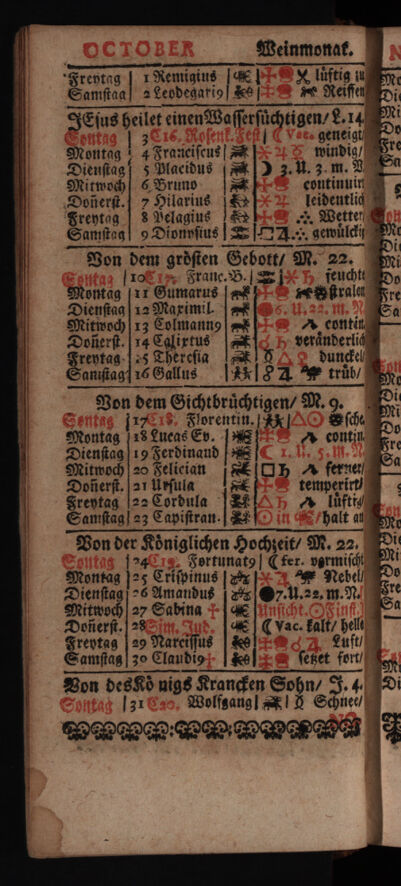 OCTOBER Weinmonat.
Freytag 1 Remigius lüftig zu
Samstag 2 Leodegari9 Reiffen
JEsus heilet einen Wassersüchtigen/ L. 14.
Sontag 3 C16. Rosenk. Fest ☾ Vac. geneigt
Montag 4 Franciscus ✶ ♃ ☿ windig/
Dienstag 5 Placidus ☽ 3. U. 3. m. V.
Mitwoch 6 Bruno continuir
Doñerst. 7 Hilarius ✶ ♃ leidentlic
Freytag 8 Pelagius Wetter
Samstag 9 Dionysius □ ♃ gewülckig
Von dem grösten Gebott/ M. 22.
Sontag 10 C17. Franc. B. ✶ ♄ feucht
Montag 11 Gumarus stralen
Dienstag 12 Maximil. 6. U. 22. m. N.
Mitwoch 13 Colmann9 contin.
Doñerst. 14 Calixtus ☌ ♄ veränderlich
Freytag 15 Theresia ☿ △ ♀ dunckel/
Samstag 16 Gallus trüb/
Von dem Gichtbrüchtigen/ M. 9.
Sontag 17 C18. Florentin. △ ☉
Montag 18 Lucas Ev. contin.
Dienstag 19 Ferdinand ☾ 1. U. 5. m. N.
Mitwoch 20 Felician □ ♄ ferner/
Doñerst. 21 Ursula temperirt/
Freytag 22 Cordula △ ♄ lüftig/
Samstag 23 Capistran. ☉ in halt an
Von der Königlichen Hochzeit/ M. 22.
Sontag 24 C19. Fortunat9 ☾ fer. vermischt
Montag 25 Crispinus ✶ ♃ Nebel/
Dienstag 26 Amandus 7. U. 22. m. N.
Mitwoch 27 Sabina † Unsicht. ☉ Finst.
Doñerst. 28 Sim. Jud. ☾ Vac. kalt/ helle
Freytag 29 Narcissus ☌ ♃ Luft/
Samstag 30 Claudi9 † setzet fort/
Von des Königs Krancken Sohn/ J. 4.
Sontag 31 C20. Wolfgang ☿ Schnee/